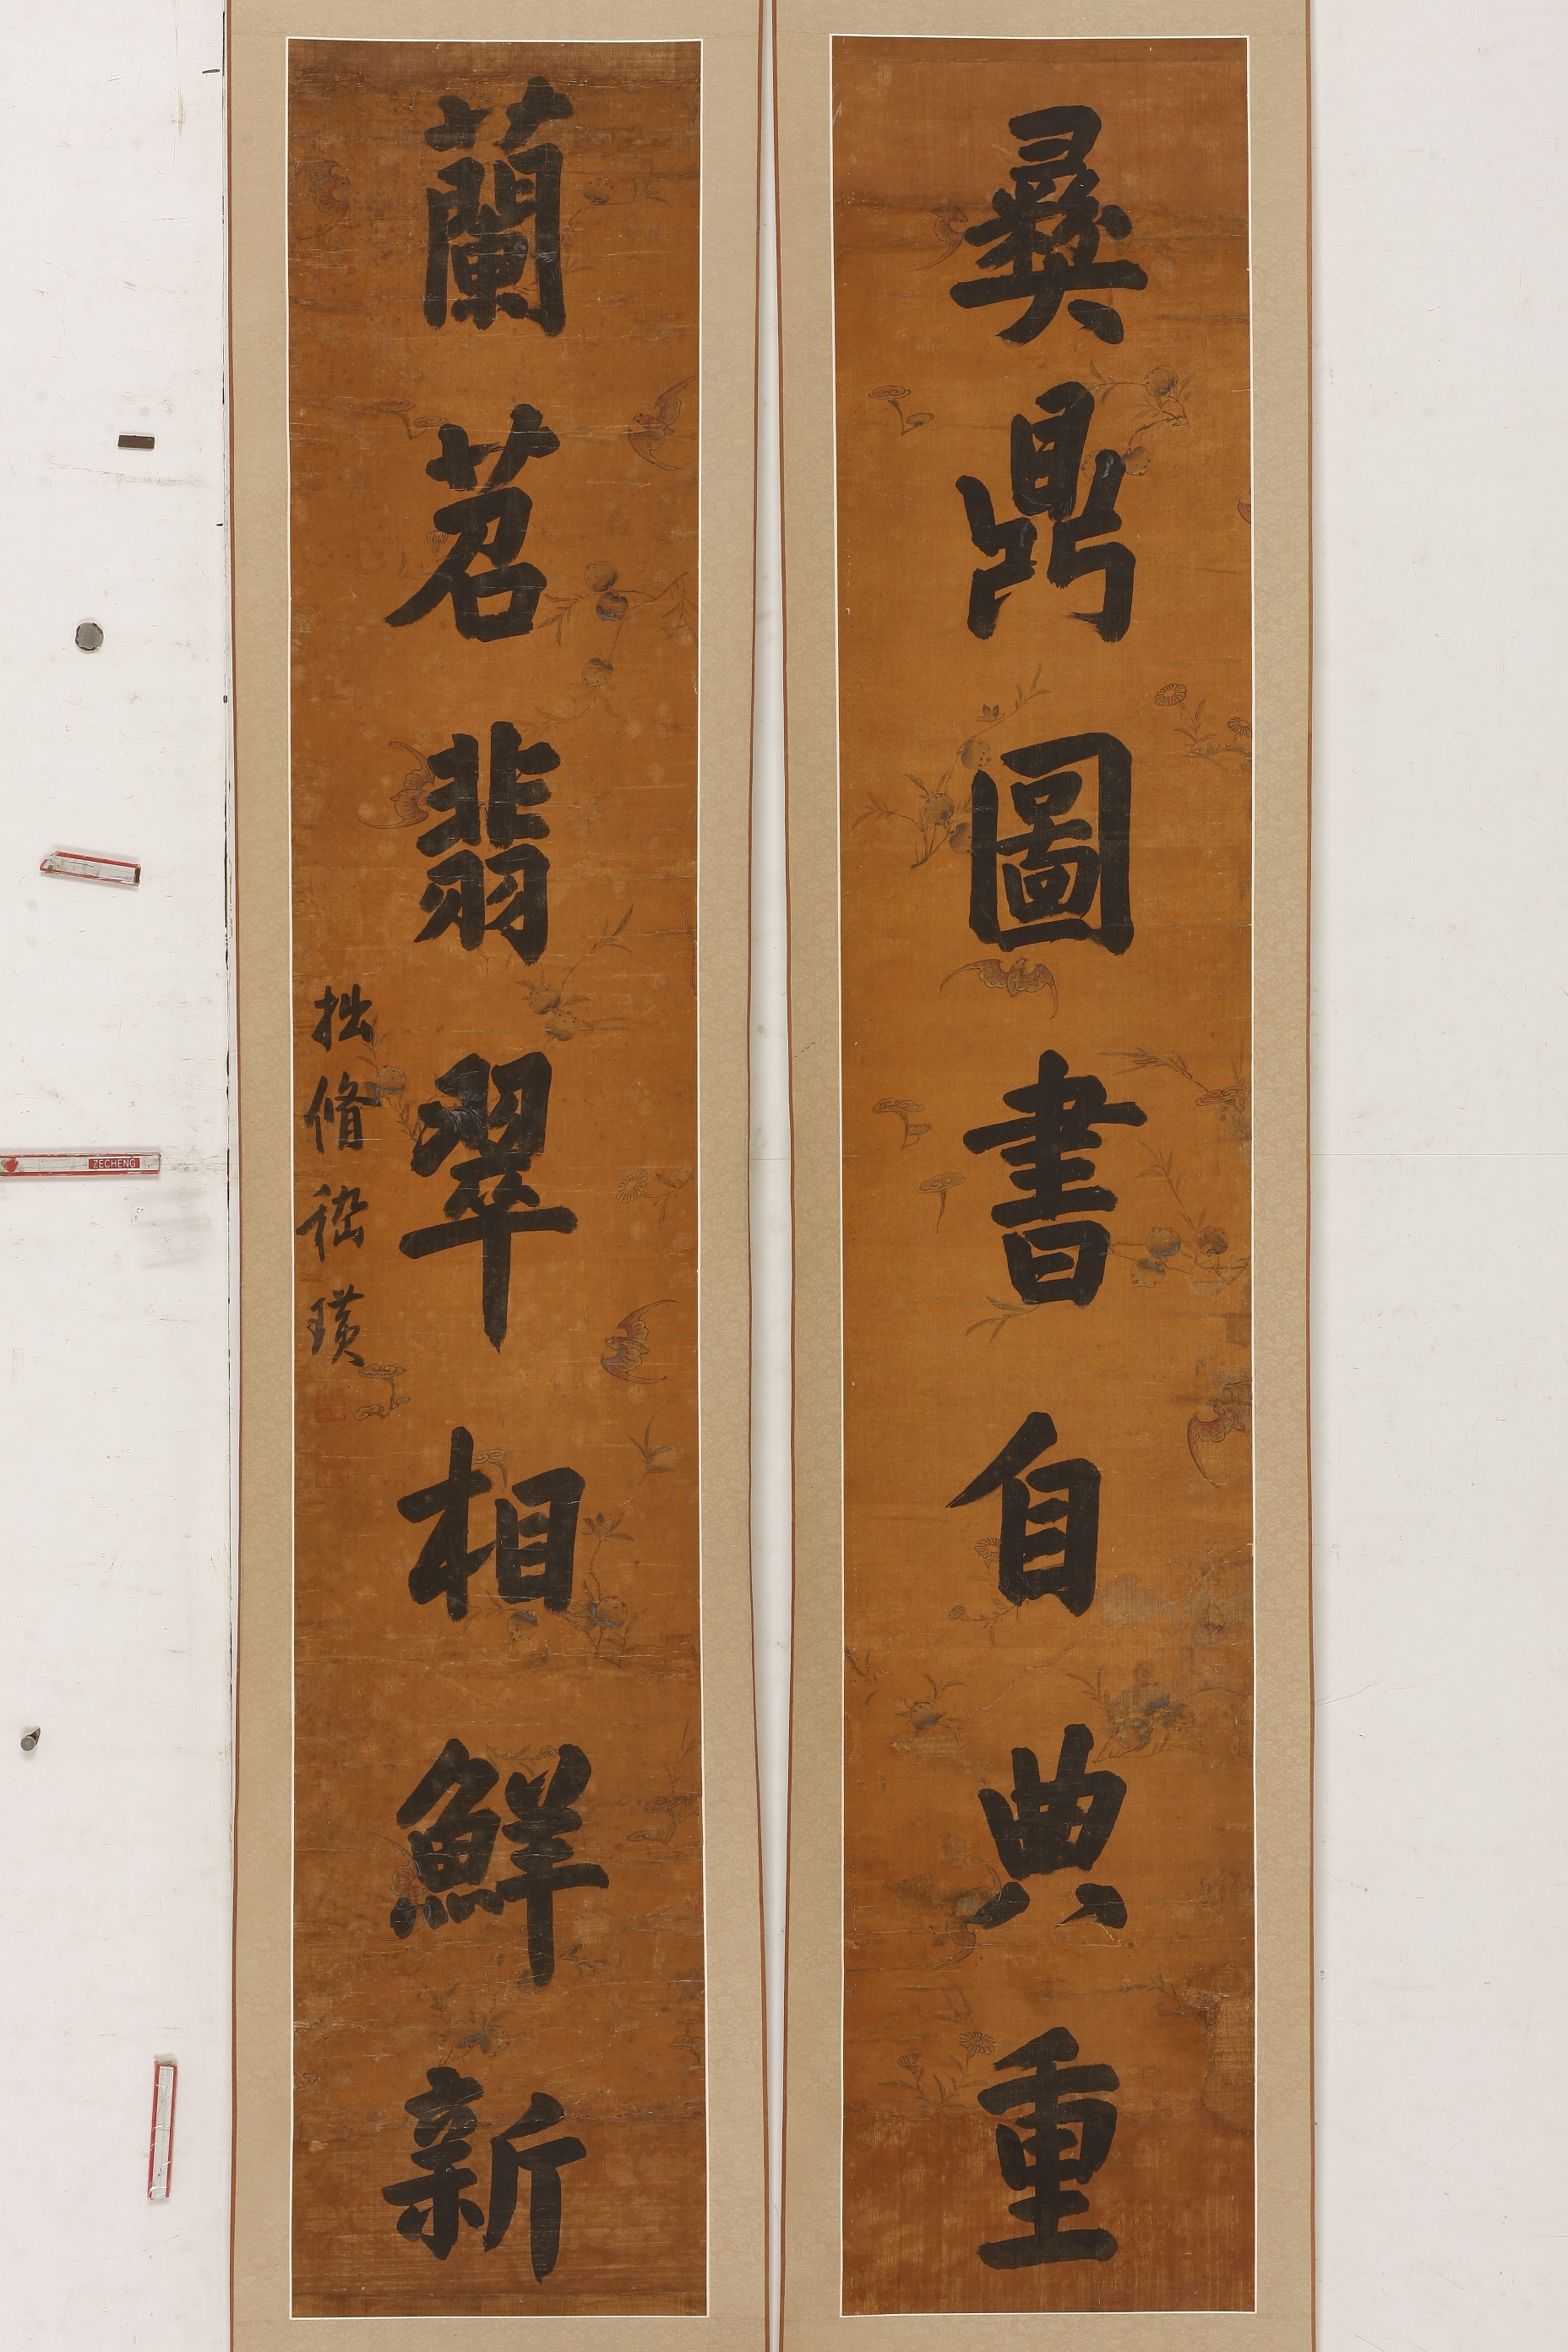 彝鼎圖書自典重
蘭苕翡翠相鮮新
拙脩嵇璜
ZECHENG